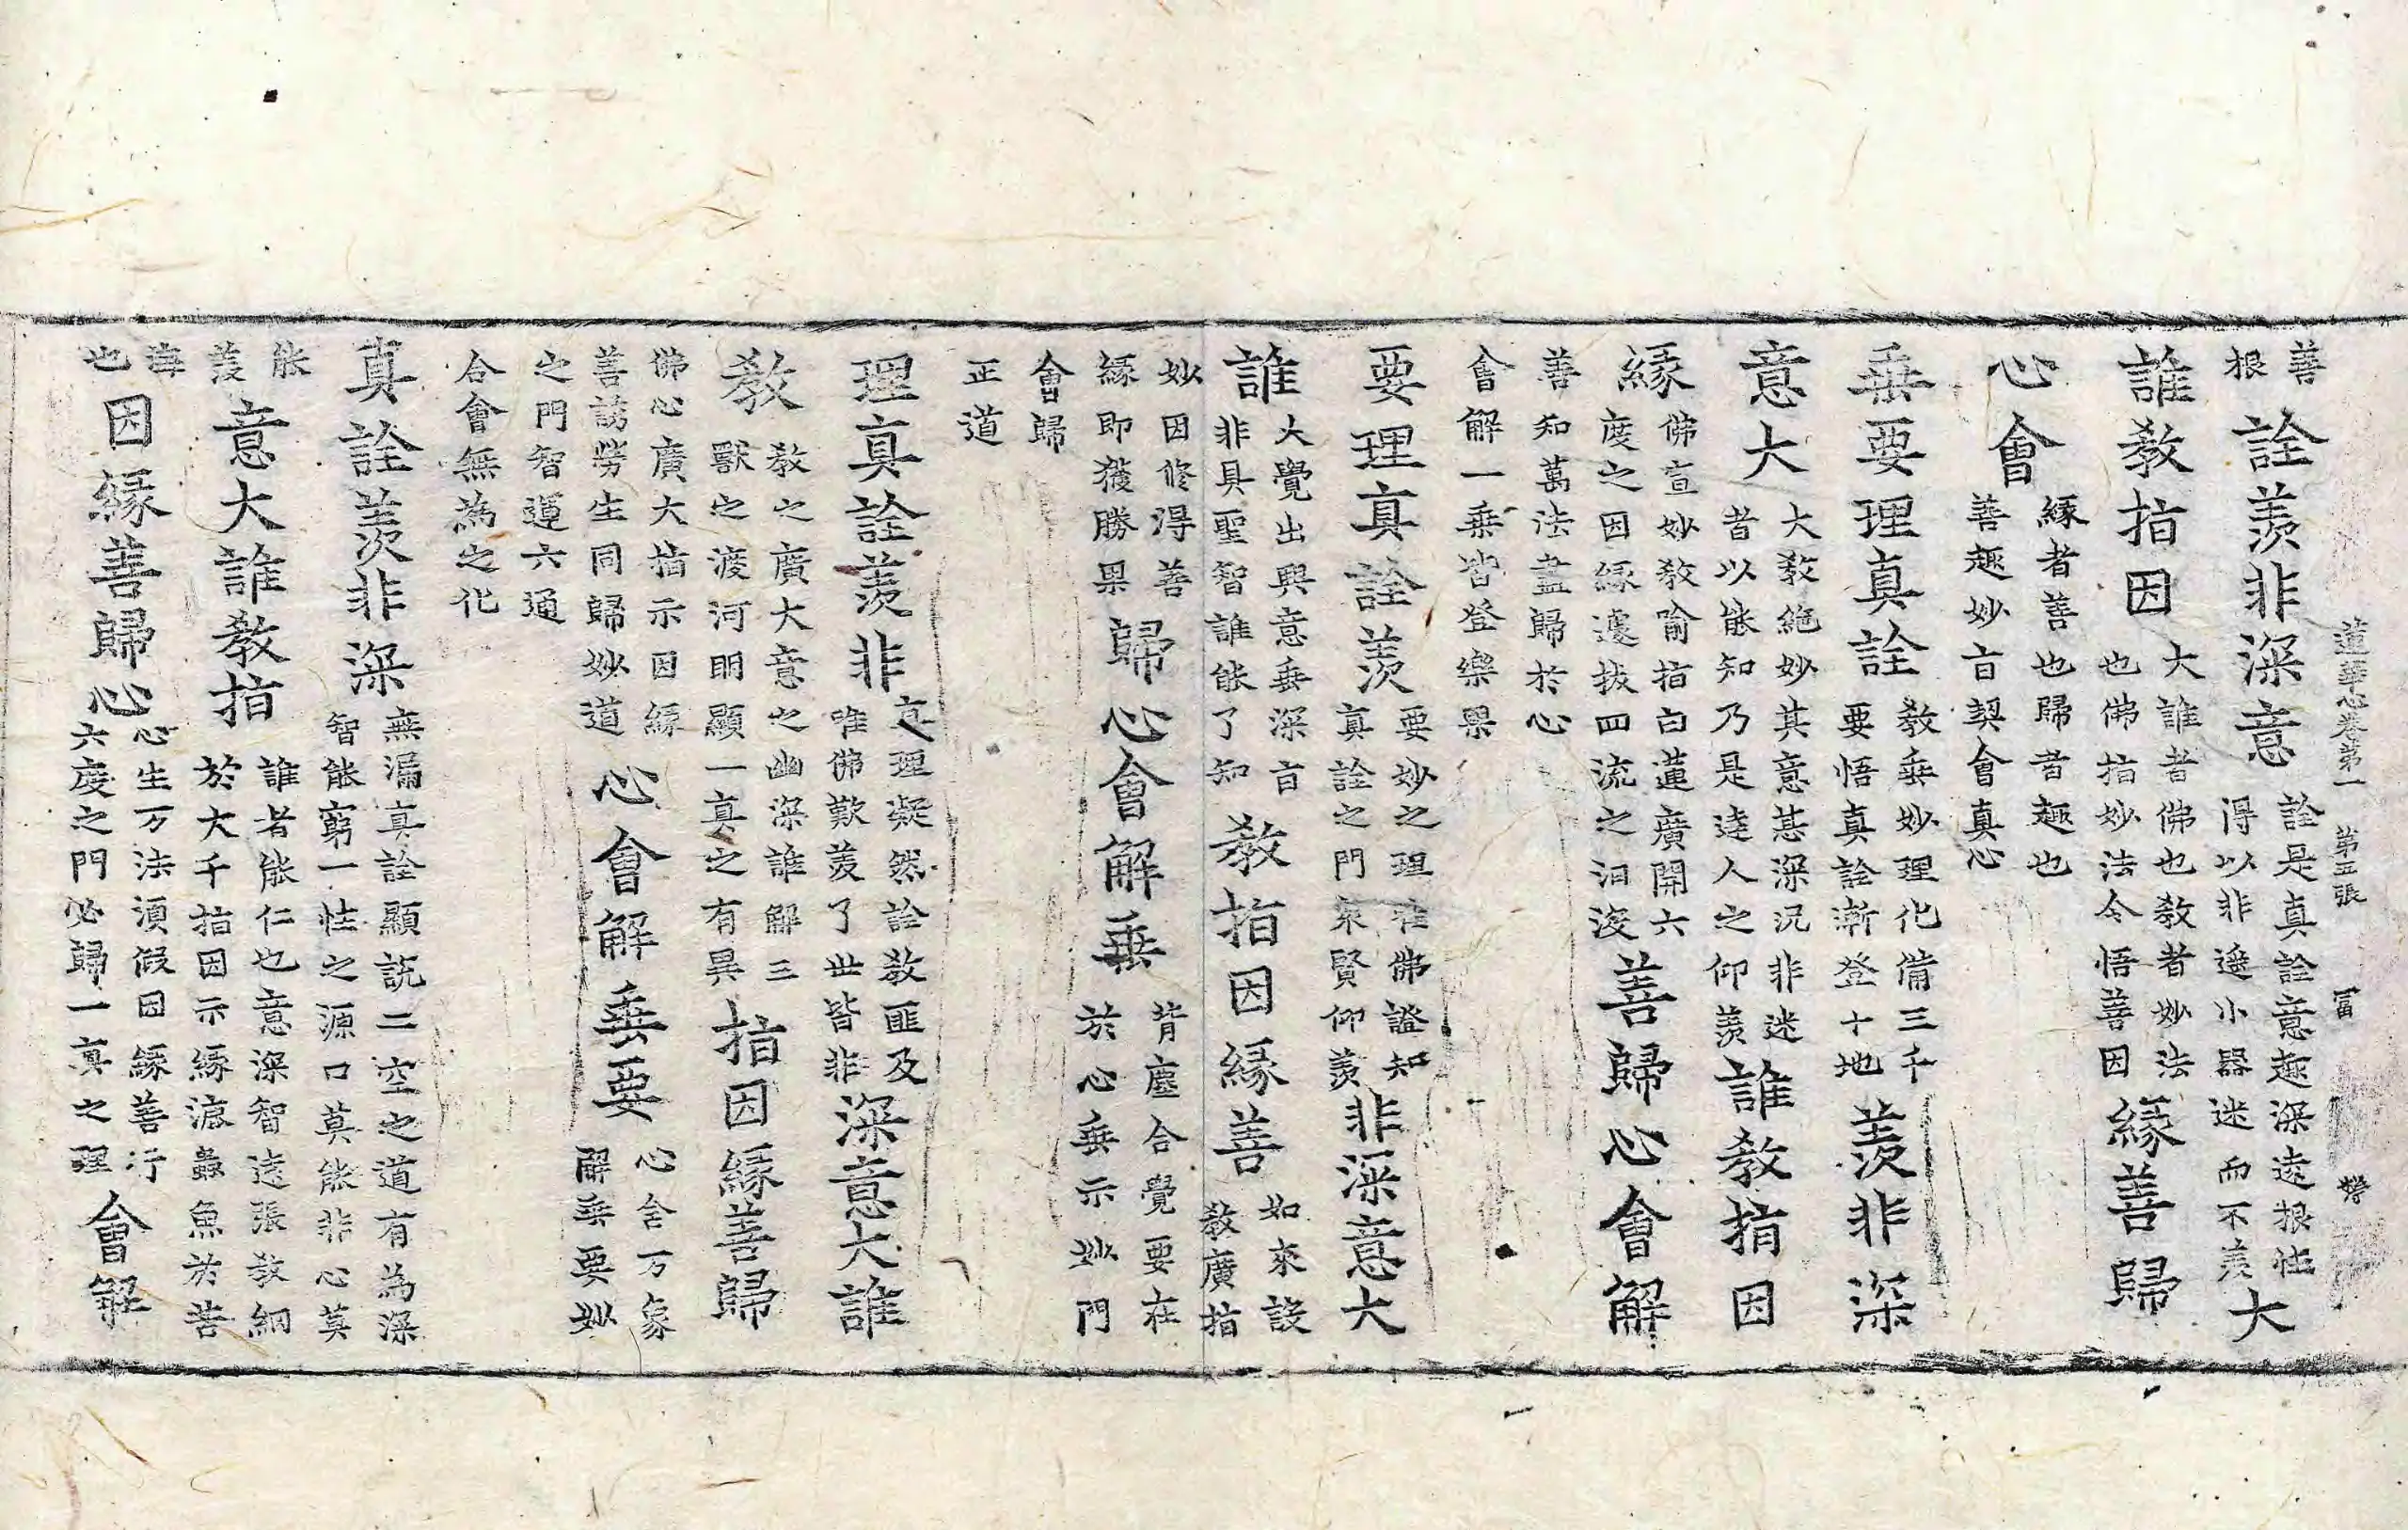 蓮華心卷第一 第五張 冨 勞
善
根
詮羨非深意
詮是真詮意趣深遠根性
得以非遥小器迷而不羨
大
誰教指因
大誰者佛也教者妙法
也佛指妙法令悟善因
縁善歸
心會
縁者善也歸者趣也
善趣妙旨契會真心
垂要理真詮
教垂妙理化備三千
要悟真詮漸登十地
羨非深
意大
大教絶妙其意甚深況非迷
者以能知乃是逹人之仰羨
誰教指因
縁
佛宣妙教喻指白蓮廣開六
度之因縁遽拔四流之汩没
善歸心會解
善知萬法盡歸於心
會解一乗皆登樂果
要理真詮羨
要妙之理唯佛證知
真詮之門衆賢仰羨
非深意大
誰
大覺出興意垂深旨
非具聖智誰能了知
教指因縁善
如來設
教廣指
妙因修得善
縁即獲勝果
歸心會解垂
背塵合覺要在
於心垂示妙門
會歸
正道
理真詮羨非
真理凝然詮教匪及
唯佛歎羨了世皆非
深意大誰
教
教之廣大意之幽深誰解三
獸之渡河明顯一真之有異
指因縁善歸
佛心廣大指示因縁
善誘勞生同歸妙道
心會解垂要
心含万象
解垂要妙
之門智運六通
合會無為之化
真詮羨非深
無漏真詮顯説二空之道有為深
智能窮一性之源口莫能非心莫
能
羨
意大誰教指
誰者能仁也意深智遠張教網
於大千指因示縁漉蠡魚於苦
海
也
因縁善歸心
心生万法須假因縁善行
六度之門必歸一真之理
會解